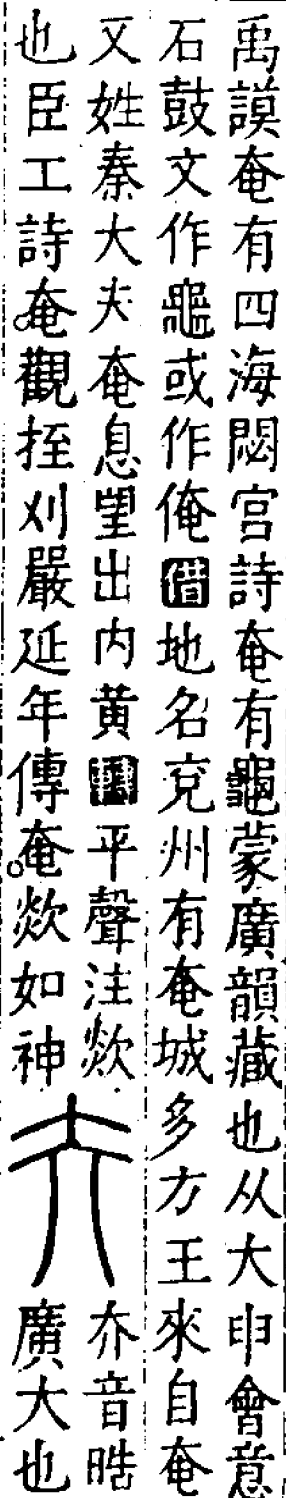 禹謨奄有四海閟宮詩奄有龜蒙廣韻藏也从大申會意
石鼓文作䵎或作俺借地名兗州有奄城多方王來自奄
又姓秦大夫奄息望出内黄轉平聲注欻
也臣工詩奄觀挃刈嚴延年傳奄欻如神
夰音晧
廣大也